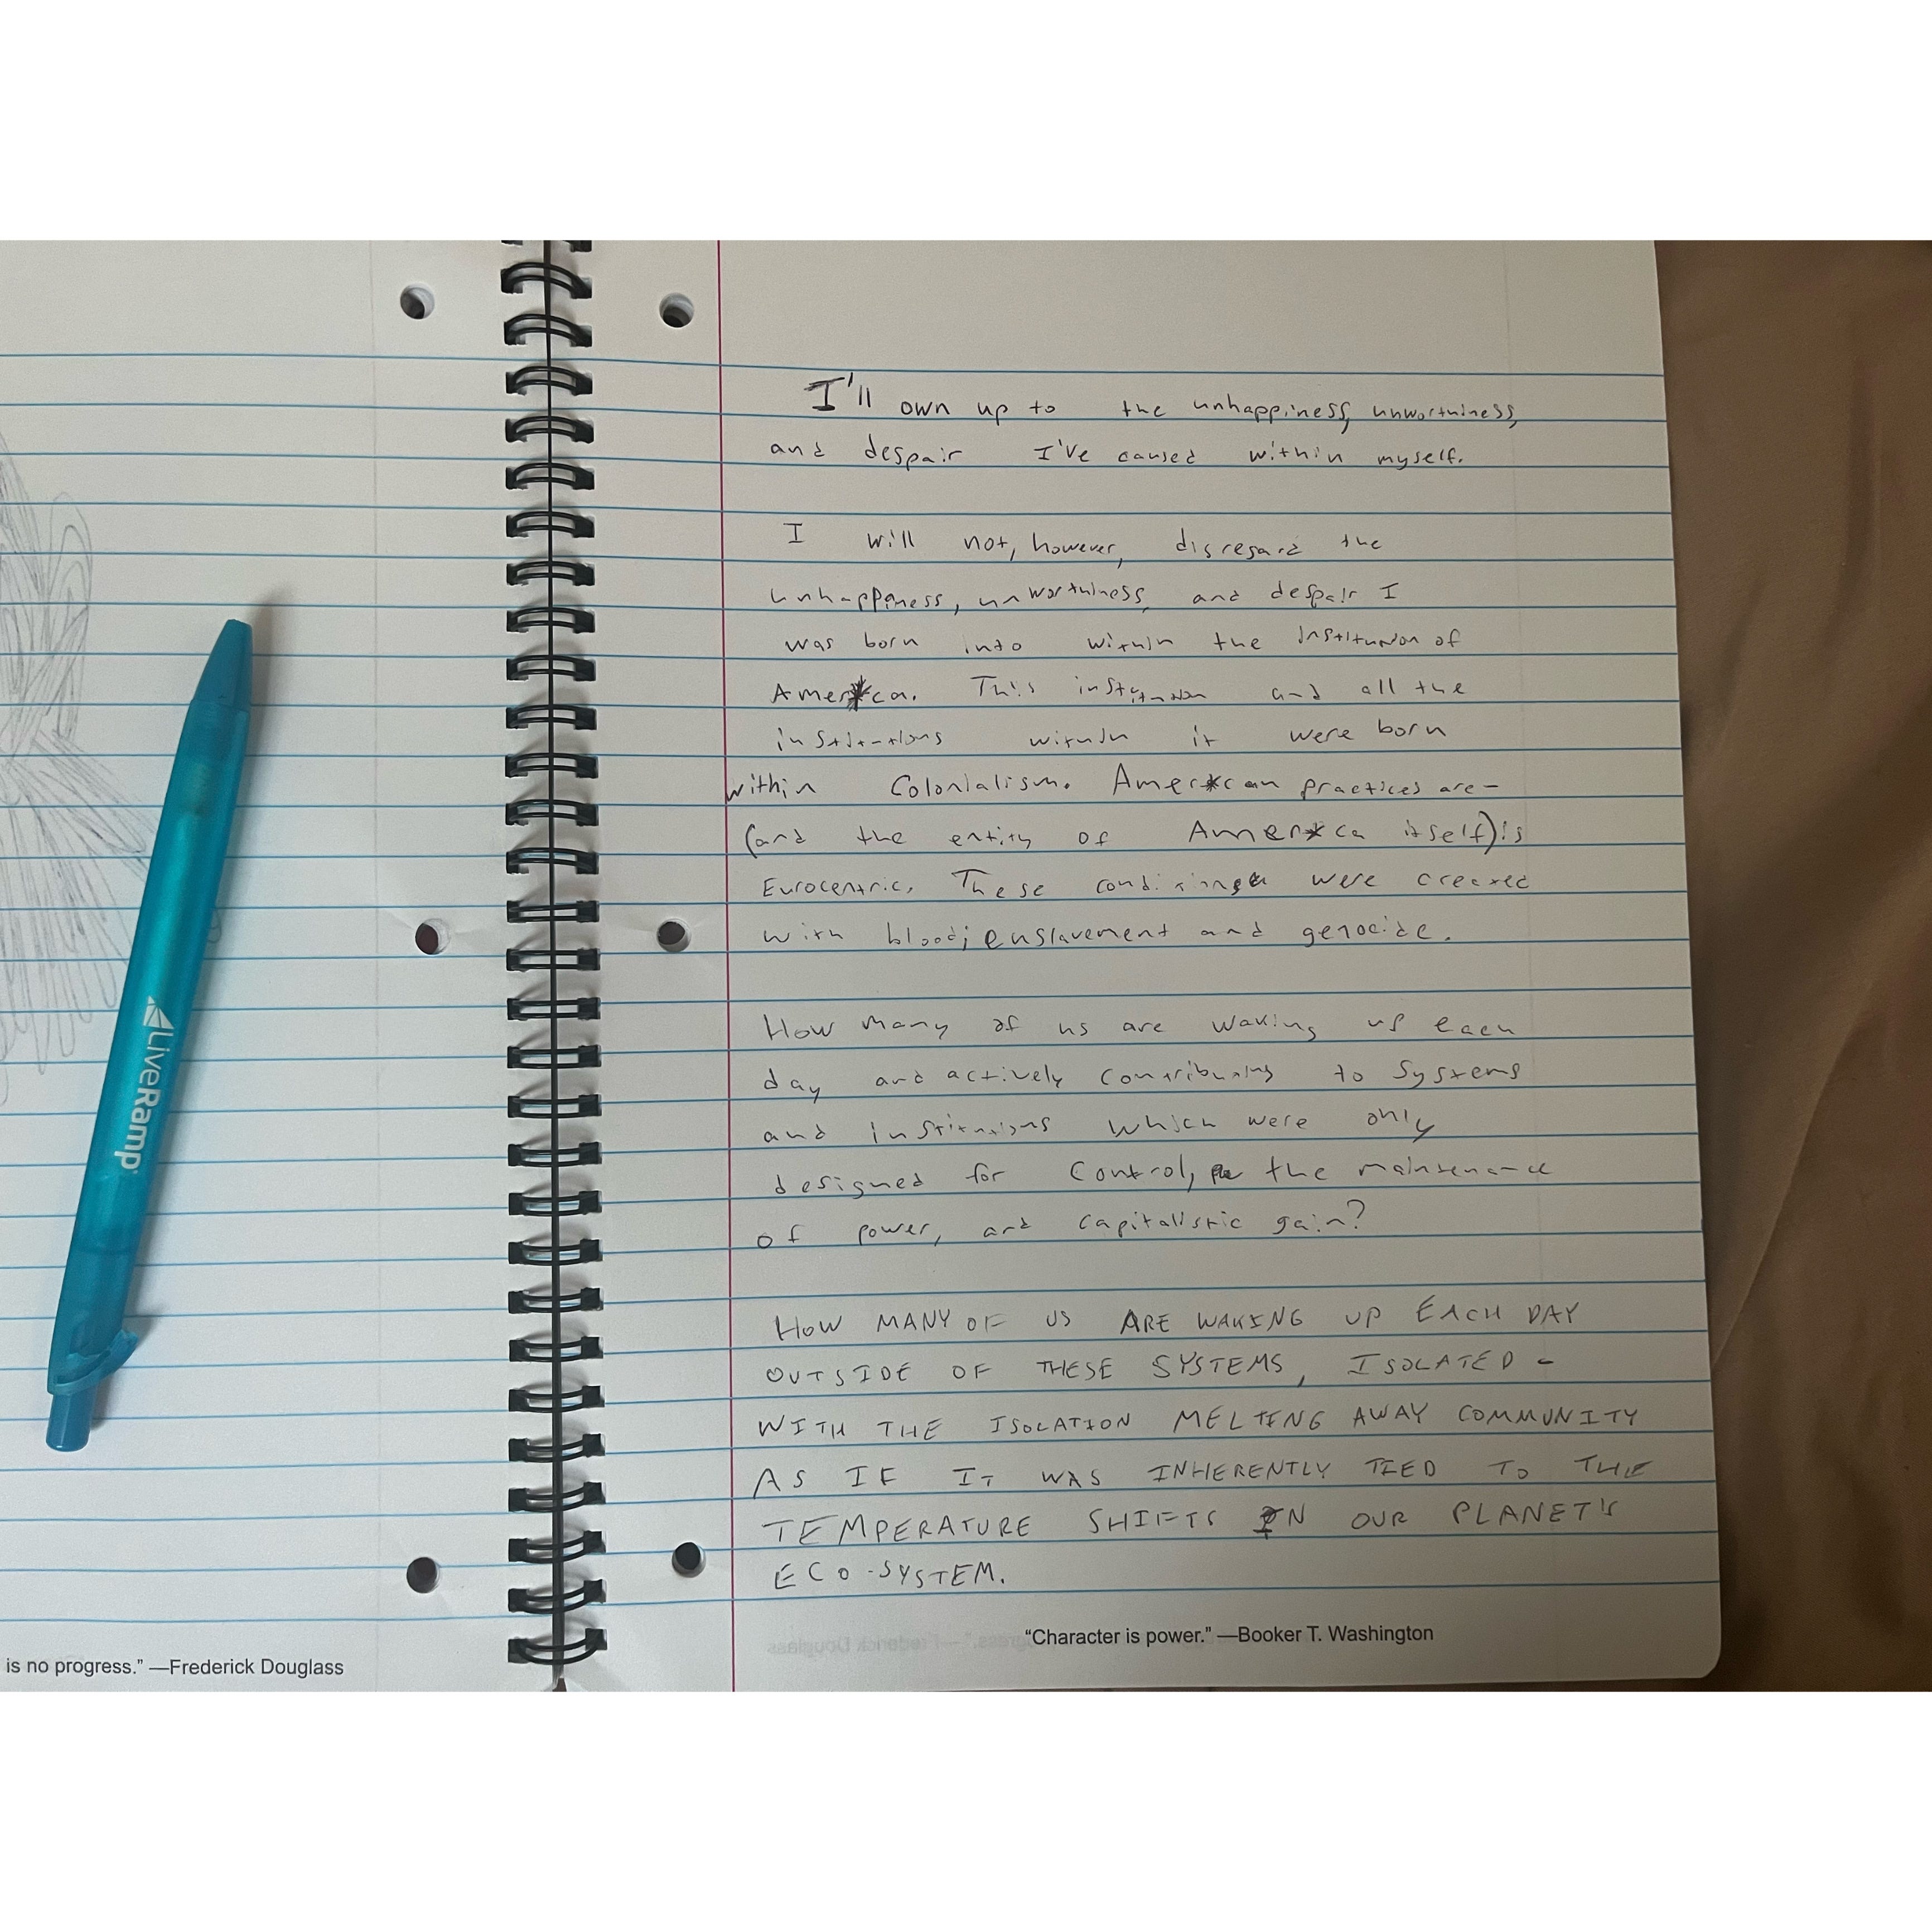 I'll own up to the unhappiness, unworthiness,
and despair I've caused within myself.
I will not, however, disregard the
unhappiness, unworthiness, and despair I
was born into within the institution of
Amer*ca. This institution and all the
institutions within it were born
within Colonialism. Amer*can practices are-
(and the entity of Amer*ca itself) is
Eurocentric. These conditions were created
with blood; enslavement and genocide.
How many of us are waking up each
day and actively contributing to systems
and institutions which were only
designed for control, the maintenance
of power, and capitalistic gain?
HOW MANY OF US ARE WAKING UP EACH DAY
OUTSIDE OF THESE SYSTEMS, ISOLATED -
WITH THE ISOLATION MELTING AWAY COMMUNITY
AS IF IT WAS INHERENTLY TIED TO THE
TEMPERATURE SHIFTS IN OUR PLANET'S
ECO-SYSTEM.
"Character is power." —Booker T. Washington
is no progress." —Frederick Douglass
LiveRamp